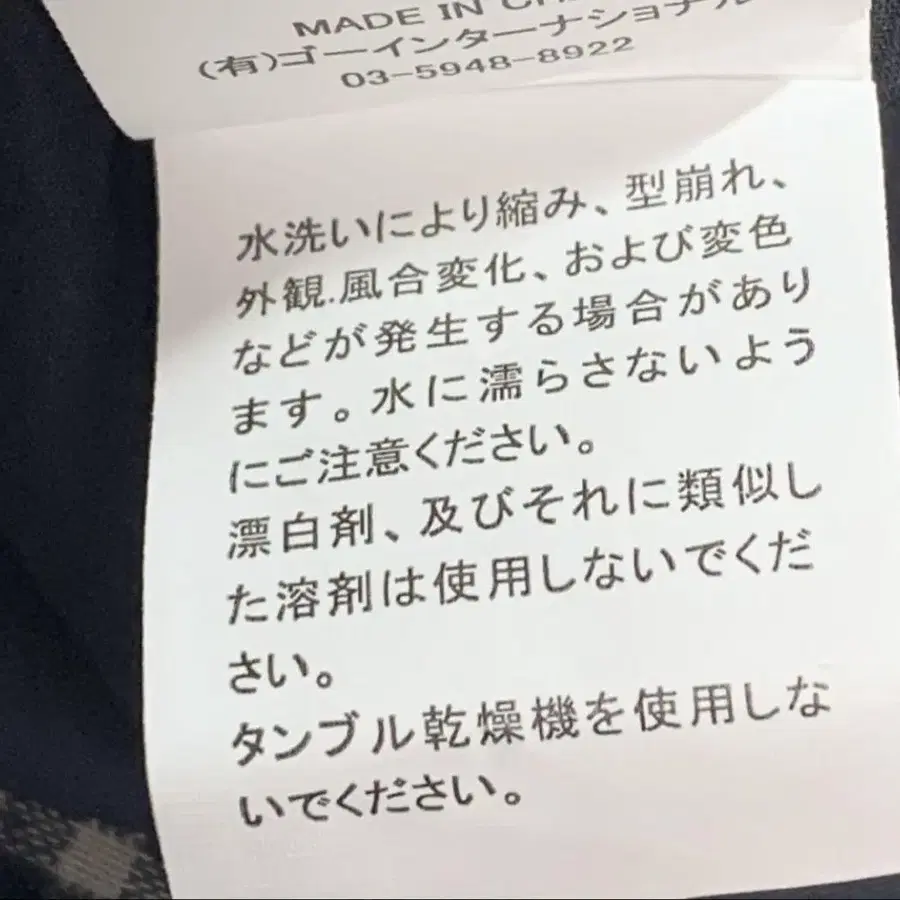 MADE IN
(有)ゴーインターナショナル
03-5948-8922
水洗いにより縮み、型崩れ、
外観.風合変化、および変色
などが発生する場合があり
ます。水に濡らさないよう
にご注意ください。
漂白剤、及びそれに類似し
た溶剤は使用しないでくだ
さい。
タンブル乾燥機を使用しな
いでください。